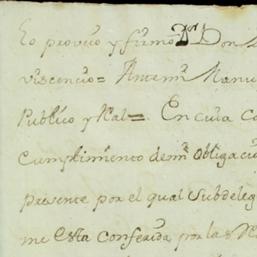 Lo proveio y firmo Dor Don
viscencio= Antemi Manu
Publico y Real= En cuia Co
Cumplimiento de mi Obligacio
presente por el qual Subdeleg
me esta conferida por la R